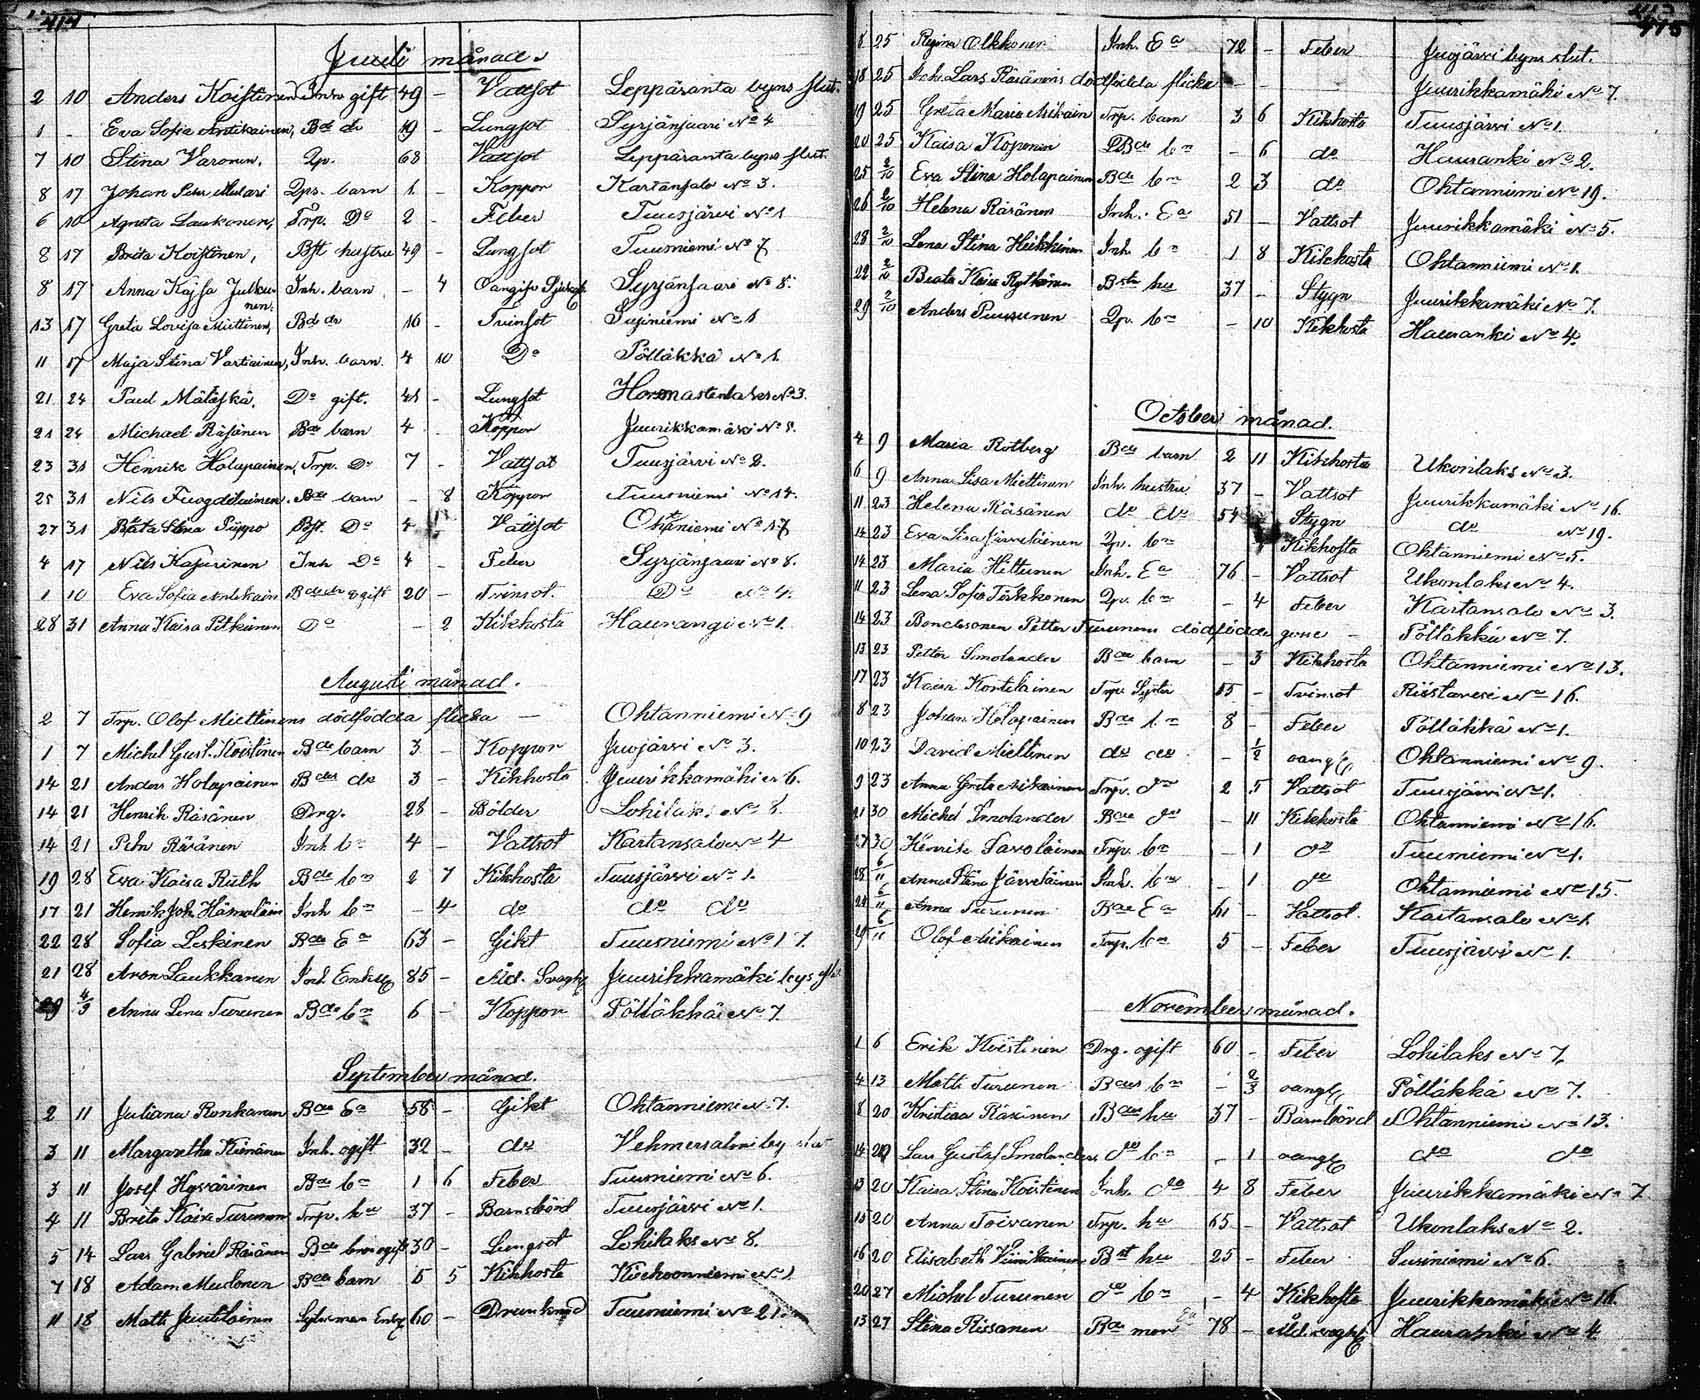 414
Juuli månad.
2 10 Anders Koistinen Inh. gift 49 - Vattsot Leppäranta byns slut.
1 - Eva Sofia Antikainen, Bd dr 19 - Lungsot Syrjänsaari No 4
7 10 Stina Varonen, Qp. 68 Vattsot Leppäranta byns slut.
8 17 Johan Mutari Qps. barn 1 - Koppor Kartansalo No 3.
6 10 Agneta Laukonen, Trp. Do 2 - Feber Tuusjärvi No 1
8 17 Brita Koistinen, Bft hustru 49 - Lungsot Tuusniemi No 7
8 17 Anna Kajsa Julkunen. Inh. barn - 4 Syrjänsaari No 8.
13 17 Greta Lovisa Miettinen, Bd dr 16 - Tvinsot Susiniemi No 1
11 17 Maja Stina Vartiainen, Inh. barn. 4 10 Do Pölläkkä No 1.
21 24 Paul Mätäskä, Do gift. 41 - Lungsot No 3.
21 24 Michael Räsänen Bde barn 4 - Koppor Juurikkamäki No 8.
23 31 Henrik Holapainen, Trp. Do 7 - Vattsot Tuusjärvi No 2.
25 31 Nils Bde barn - 8 Koppor Tuusniemi No 14.
27 31 Beata Stina Piippo Bft. Do 4 - Vattsot Ohtaniemi No 17
4 17 Nils Kasurinen Inh Do 4 - Feber Syrjänsaari No 8.
1 10 Eva Sofia Antikain Bde dr ogift 20 - Tvinsot. Do No 4.
28 31 Anna Kaisa Pitkänen Do - 2 Kikhosta Haurangi No 1.
Augusti månad.
2 7 Trp. Olof Miettinens dödfödda flicka - Ohtanniemi No 9
1 7 Michel Gust. Koistinen Bde barn 3 - Koppor Juojärvi No 3.
14 21 Anders Holapainen Bdes do 3 - Kikhosta Juurikkamäki No 6.
14 21 Henrik Räsänen Drng. 28 - Bölder Lohilaks No 8.
14 21 Petr Räsänen Inh. bn 4 - Vattsot Kartansalo No 4
19 28 Eva Kaisa Ruth Bde bn 2 7 Kikhosta Tuusjärvi No 1.
17 21 Henrik Joh. Hämäläin Inh bn - 4 do do do
22 28 Sofia Leskinen Bde Ea 63 - Gikt Tuusniemi No 17.
21 28 Aron Laukkanen Inh. Enkl 85 - Åld. Svagh Juurikkamäki bys slut
29 4/9 Anna Lena Turunen Bde bn 6 - Koppor Pölläkkä No 7.
September månad.
2 11 Juliana Ronkanen Bde Ea 58 - Gikt Ohtanniemi No 7.
3 11 Margaretha Kinnänen Inh. ogift 32 - do Vehmersalmi by slut
3 11 Josef Hyvärinen Bde bn 1 6 Feber Tuusniemi No 6.
4 11 Brita Kaisa Turunen Trp. hu 37 - Barnsbörd Tuusjärvi No 1.
5 14 Lars Gabriel Räsänen Bde bror ogift 30 - Lungsot Lohilaks No 8.
7 18 Adam Mustonen Bde barn 5 5 Kikhosta No 1
11 18 Matts Juutilainen Enkl 60 - Drunknad Tuusniemi No 21.
413
415
8 25 Regina Olkkonen Inh. Ea 72 - Feber Juojärvi byns slut.
18 25 Inh. Lars Räsänens dödfödda flicka - - Juurikkamäki No 7.
19 25 Greta Maria Mikain Trp. barn 3 6 Kikhosta Tuusjärvi No 1.
20 25 Kaisa Koponen Bde bn - 6 do Hauranki No 2.
25 2/10 Eva Stina Holapainen Bde bn 2 3 do Ohtanniemi No 19.
26 2/10 Helena Räsänen Inh. Ea 51 - Vattsot Juurikkamäki No 5.
28 2/10 Lena Stina Heikkinen Inh. bn 1 8 Kikhosta Ohtanniemi No 1.
22 2/10 Beata Kaisa Rytkönen Bde hu 37 - Stygn Juurikkamäki No 7.
29 2/10 Anders Puurunen Qp. bn - 10 Kikhosta Hauranki No 4.
October månad.
4 9 Maria Rotberg Bde barn 2 11 Kikhosta Ukonlaks No 3.
6 9 Anna Lisa Miettinen Inh. hustru 37 - Vattsot Juurikkamäki No 16.
11 23 Helena Räsänen do do 54 Stygn do No 19.
14 23 Eva Lisa Järveläinen Qp. bn Kikhosta Ohtanniemi No 5.
14 23 Maria Hiltunen Inh. Ea 76 - Vattsot Ukonlaks No 4.
11 23 Lena Sofia Törkkonen Qp. bn - 4 Feber Kartansalo No 3.
14 23 Bondesonen Petter Turunens dödfödda gosse - Pölläkkä No 7.
13 23 Petter Smolander Bde barn - 3 Kikhosta Ohtanniemi No 13.
17 23 Kaisa Kontilainen Trp. Syster 55 - Tvinsot Riistavesi No 16.
8 23 Johan Holapainen Bde bn 8 - Feber Pölläkkä No 1.
10 23 David Miettinen do do - 1/2 oang Ohtanniemi No 9.
9 23 Anna Greta Mikainen Trp. do 2 5 Vattsot Tuusjärvi No 1.
21 30 Michel Smolander Bde do - 11 Kikhosta Ohtanniemi No 16.
27 30 Henrik Tavolainen Trp. bn - 1 do Tuusniemi No 1.
28 6/11 Anna Stina Järveläinen Inh. bn - 1 do Ohtanniemi No 15.
24 6/11 Anna Turunen Bde Ea 61 - Vattsot. Kartansalo No 1.
29 6/11 Olof Mikainen Trp. bn 5 - Feber Tuusjärvi No 1.
November månad.
1 6 Erik Koistinen Drg. ogift 60 - Feber Lohilaks No 7,
4 13 Matts Turunen Bdes bn - 2/3 oang Pölläkkä No 7.
8 20 Kristina Räsänen Bde hu 37 - Barnsbörd Ohtanniemi No 13.
14 20 Lars Gustaf Smolander do bn - 1 oang do do
13 20 Kaisa Stina Koistinen Inh. do 4 8 Feber Juurikkamäki No 7
15 20 Anna Toivanen Trp. hu 65 - Vattsot Ukonlaks No 2.
16 20 Elisabeth Bst hu 25 - Feber Susiniemi No 6.
20 27 Michel Turunen do bn - 4 Kikhosta Juurikkamäki No 16.
13 27 Stina Rissanen Bde mor Ea 78 - Åld. svagh Hauranki No 4.